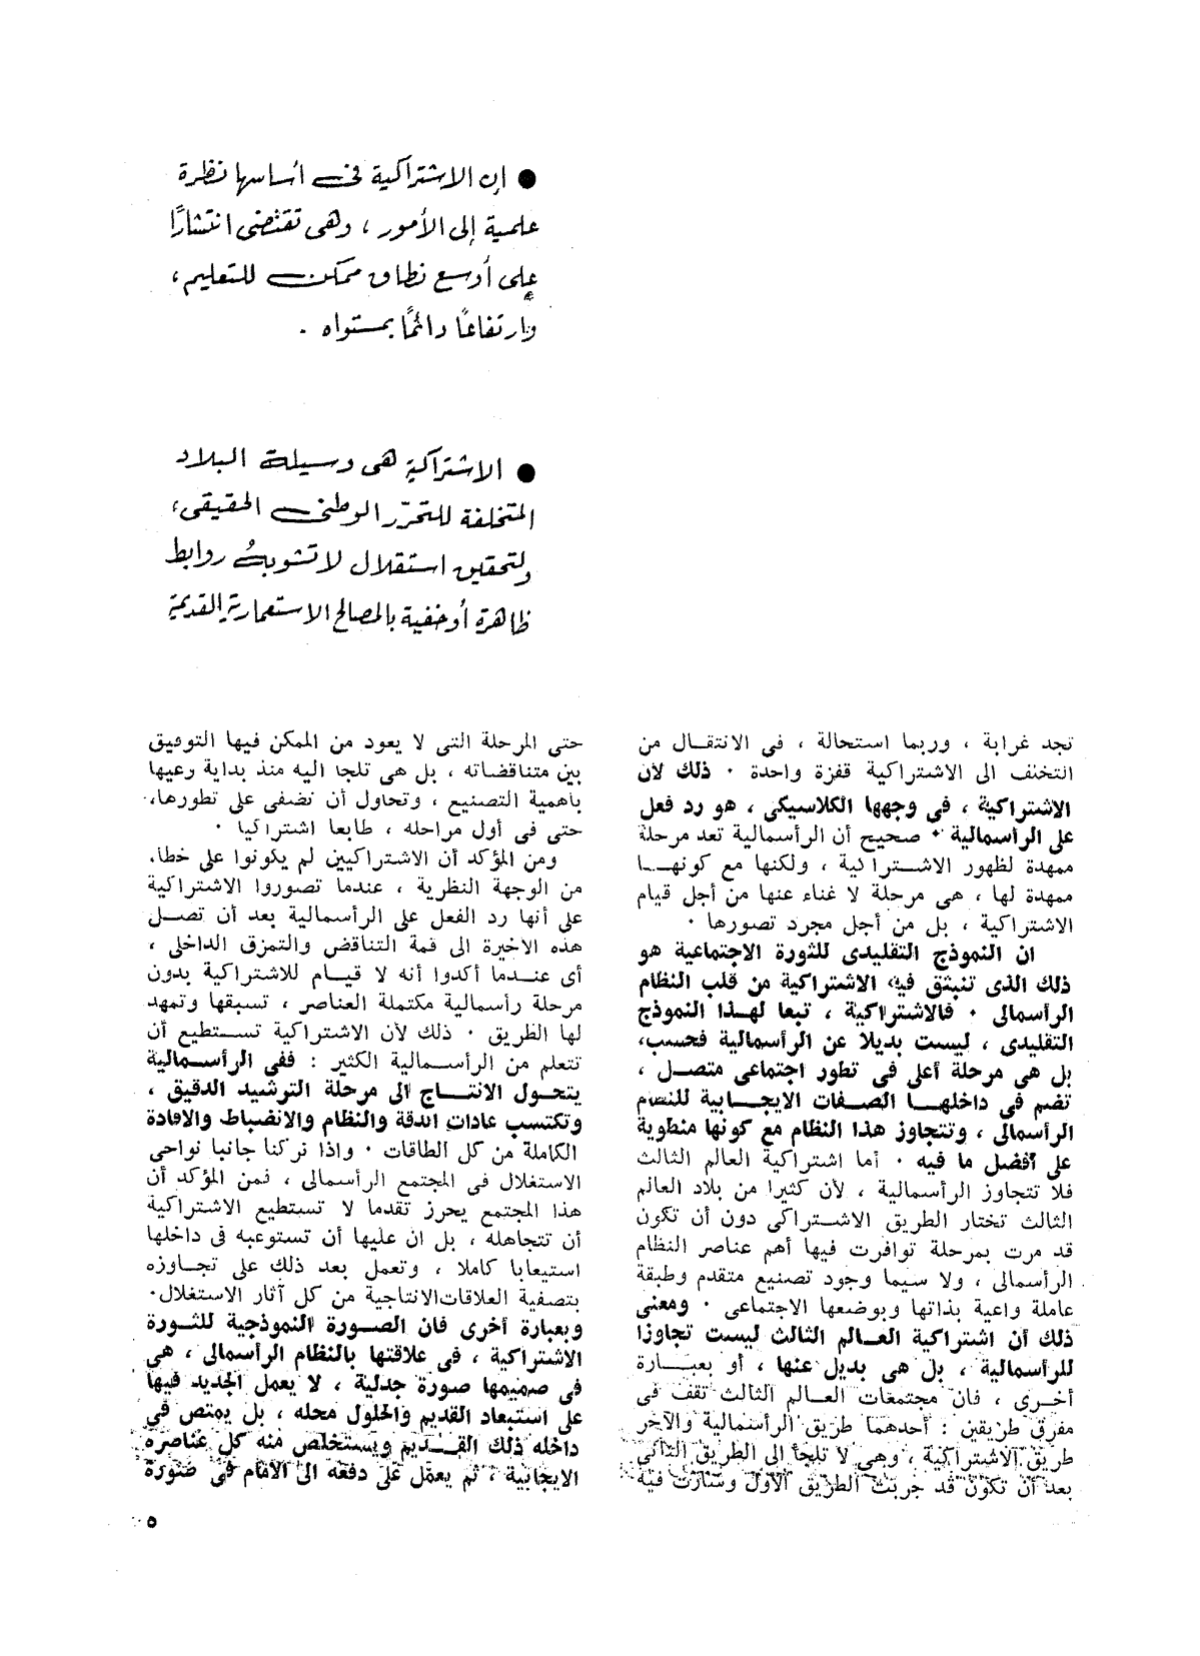 ● إن الاشتراكية فى أساسها نظرة
علمية إلى الأمور ، وهى تقتضى انتشارًا
على أوسع نطاق ممكن للتعليم ،
وارتفاعًا دائمًا بمستواه .
● الاشتراكية هى وسيلة البلاد
المتخلفة للتحرّر الوطنى الحقيقى ،
ولتحقيق استقلال لا تشوبه روابط
ظاهرة أو خفية بالمصالح الاستعمارية القديمة
تجد غرابة ، وربما استحالة ، فى الانتقــال من
التخلف الى الاشتراكية قفزة واحدة · ذلك لأن
الاشتراكية ، فى وجهها الكلاسيكى ، هو رد فعل
على الرأسمالية · صحيح أن الرأسمالية تعد مرحلة
ممهدة لظهور الاشــتراكية ، ولكنها مع كونهــا
ممهدة لها ، هى مرحلة لا غناء عنها من أجل قيام
الاشتراكية ، بل من أجل مجرد تصورها ·
ان النموذج التقليدى للثورة الاجتماعية هو
ذلك الذى تنبثق فيه الاشتراكية من قلب النظام
الرأسمالى · فالاشتراكية ، تبعا لهــذا النموذج
التقليدى ، ليست بديلا عن الرأسمالية فحسب،
بل هى مرحلة أعلى فى تطور اجتماعى متصــل ،
تضم فى داخلهــا الصــفات الايجــابية للنظام
الرأسمالى ، وتتجاوز هذا النظام مع كونها منطوية
على أفضل ما فيه · أما اشتراكية العالم الثالث
فلا تتجاوز الرأسمالية ، لأن كثيرا من بلاد العالم
الثالث تختار الطريق الاشــتراكى دون أن تكون
قد مرت بمرحلة توافرت فيها أهم عناصر النظام
الرأسمالى ، ولا سيما وجود تصنيع متقدم وطبقة
عاملة واعية بذاتها وبوضعها الاجتماعى · ومعنى
ذلك أن اشتراكية العــالم الثالث ليست تجاوزا
للرأسمالية ، بل هى بديل عنها ، أو بعبــارة
أخــرى ، فان مجتمعات العــالم الثالث تقف فى
مفرق طريقين : أحدهما طريق الرأسمالية والآخر
طريق الاشتراكية ، وهى لا تلجأ الى الطريق الثانى
بعد أن تكون قد جربت الطريق الأول وسارت فيه
حتى المرحلة التى لا يعود من الممكن فيها التوفيق
بين متناقضاته ، بل هى تلجا اليه منذ بداية وعيها
بأهمية التصنيع ، وتحاول أن تضفى على تطورها،
حتى فى أول مراحله ، طابعا اشتراكيا ·
ومن المؤكد أن الاشتراكيين لم يكونوا على خطأ،
من الوجهة النظرية ، عندما تصوروا الاشتراكية
على أنها رد الفعل على الرأسمالية بعد أن تصــل
هذه الاخيرة الى قمة التناقض والتمزق الداخلى ،
أى عنــدما أكدوا أنه لا قيــام للاشتراكية بدون
مرحلة رأسمالية مكتملة العناصر ، تسبقها وتمهد
لها الطريق · ذلك لأن الاشتراكية تســتطيع أن
تتعلم من الرأســمالية الكثير : ففى الرأســمالية
يتحــول الانتــاج الى مرحلة الترشيد الدقيق ،
وتكتسب عادات الدقة والنظام والانضباط والافادة
الكاملة من كل الطاقات · واذا تركنا جانبا نواحى
الاستغلال فى المجتمع الرأسمالى ، فمن المؤكد أن
هذا المجتمع يحرز تقدما لا تستطيع الاشتراكية
أن تتجاهله ، بل ان عليها أن تستوعبه فى داخلها
استيعابا كاملا ، وتعمل بعد ذلك على تجــاوزه
بتصفية العلاقات الانتاجية من كل آثار الاستغلال·
وبعبارة أخرى فان الصــورة النموذجية للثــورة
الاشتراكية ، فى علاقتها بالنظام الرأسمالى ، هى
فى صميمها صورة جدلية ، لا يعمل الجديد فيها
على استبعاد القديم والحلول محله ، بل يمتص فى
داخله ذلك القــديم ويستخلص منه كل عناصره
الايجابية ، ثم يعمل على دفعه الى الأمام فى صورة
٥